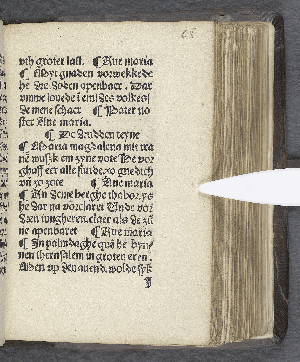 68
vth groter last. ¶ Aue maria
¶ Myt gnaden vorwekkede
he de doden openbaer. Dar
vmme louede en des volkes
de mene schaer ¶ Pater no
ster Aue maria.
¶ De drudden teyne
¶ Maria magdalena mit tra
ne wusk em zyne vote He vor
ghaff eer alle sunde zo gnedich
vn zo zote ¶ Aue maria
¶ Up deme berghe thabor ys
he dar na vorclaret Unde vor
den iungheren claer als de zu
ne apenbaret ¶ Aue maria
¶ In palmdaghe quā he byn
nen iherusalem in groten eren.
Alden vp den auend. wolde syk